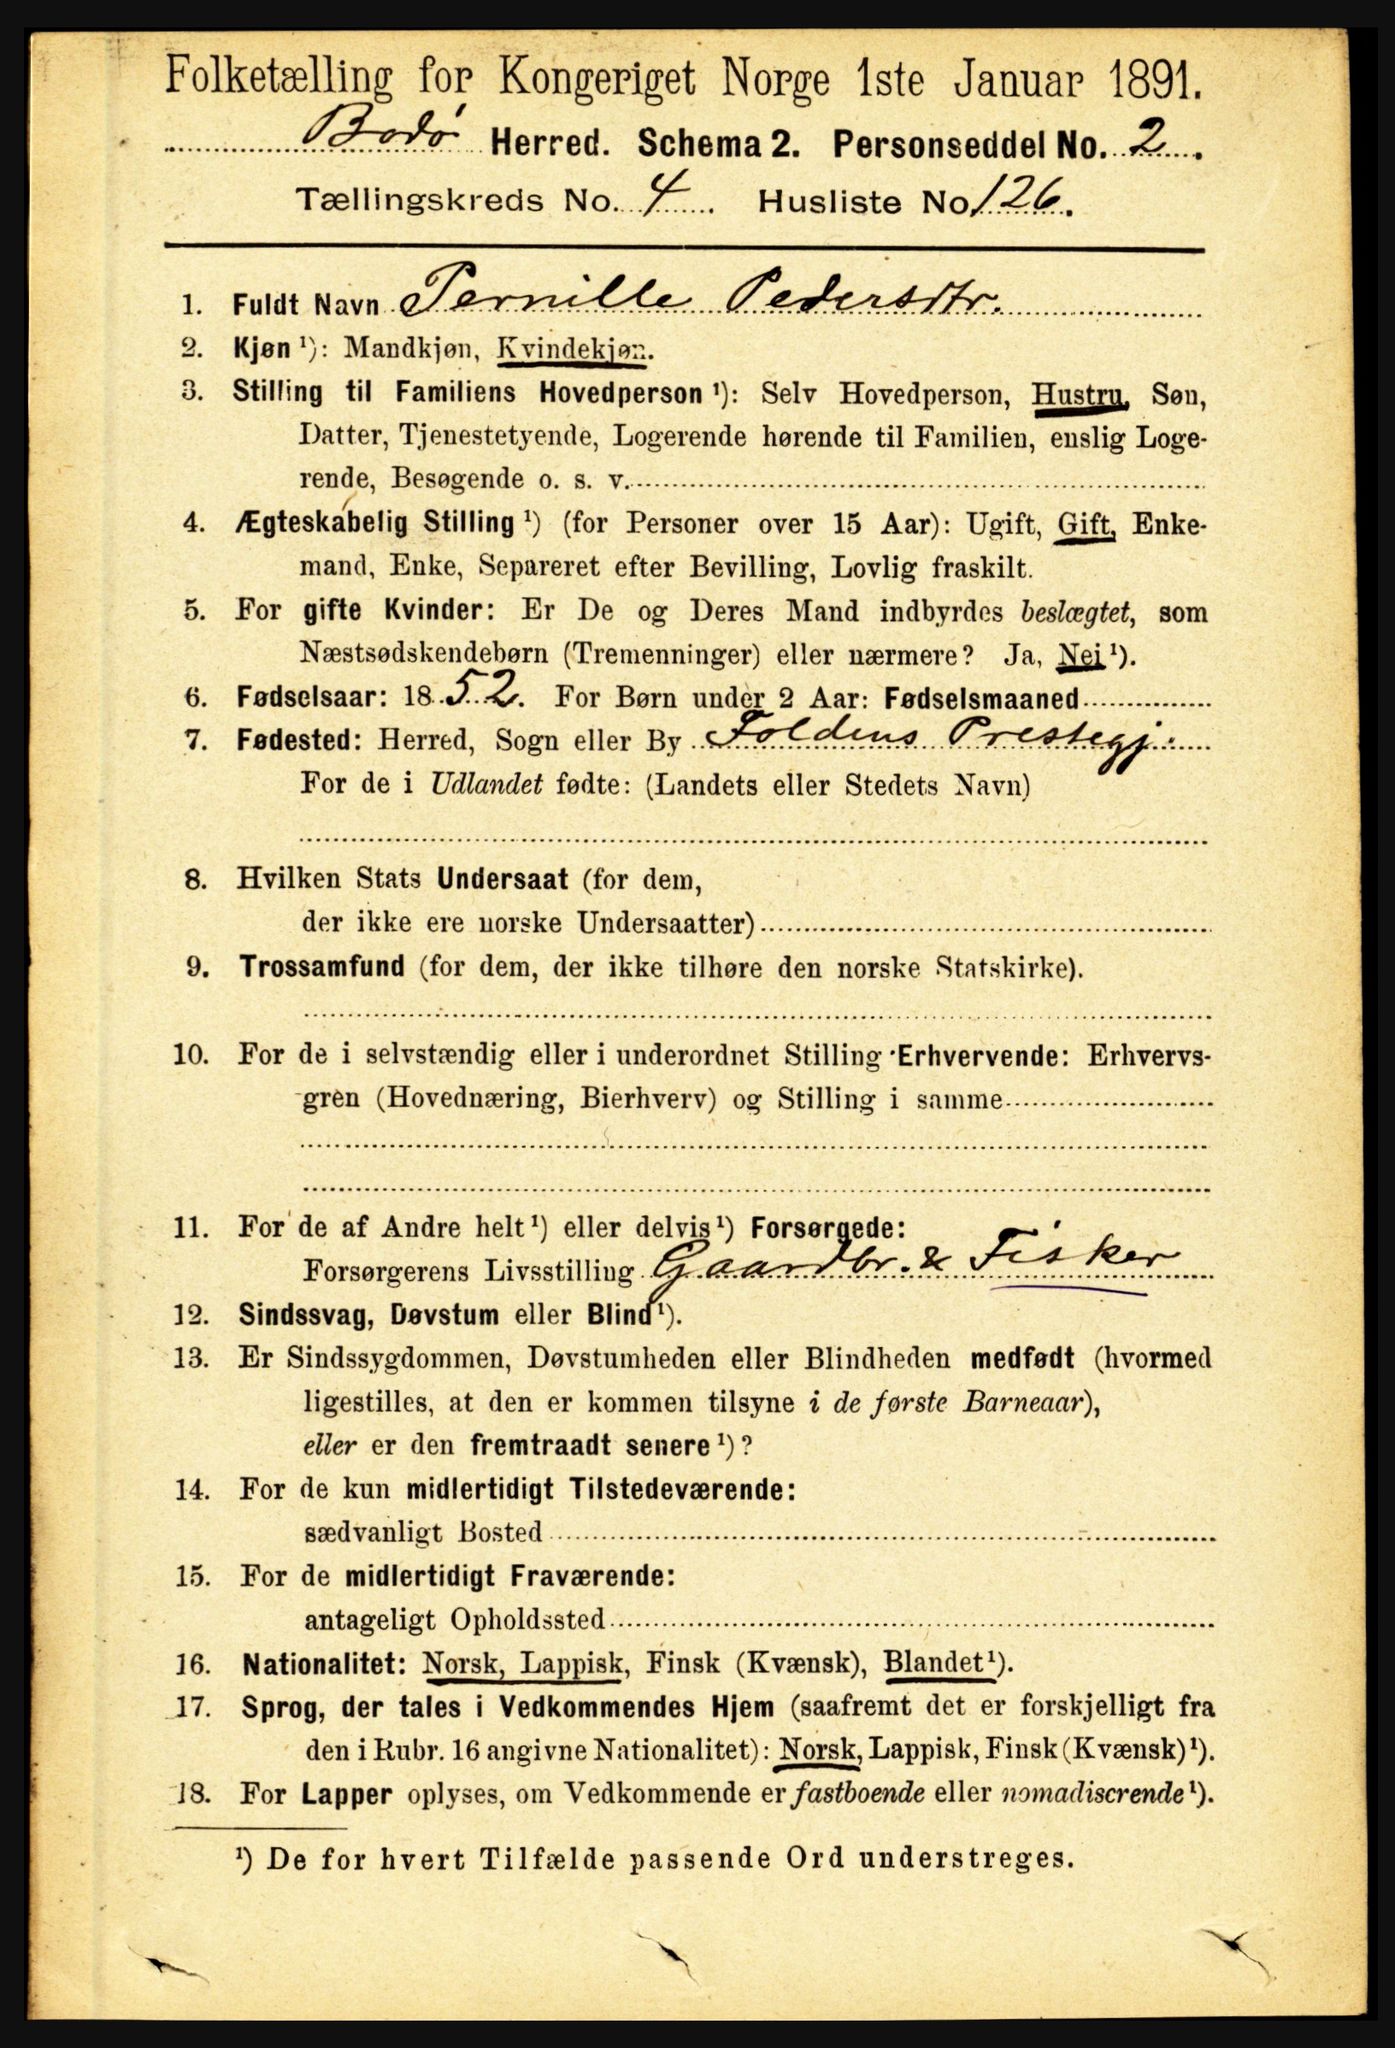 Folketælling for Kongeriget Norge 1ste Januar 1891.
Bodø Herred. Schema 2. Personseddel No. 2.
Tællingskreds No. 4. Husliste No. 126.
1. Fuldt Navn Pernille Pedersdtr.
2. Kjøn ¹): Mandkjøn, Kvindekjøn.
3. Stilling til Familiens Hovedperson ¹): Selv Hovedperson, Hustru, Søn,
Datter, Tjenestetyende, Logerende hørende til Familien, enslig Loge-
rende, Besøgende o. s. v.
4. Ægteskabelig Stilling ¹) (for Personer over 15 Aar): Ugift, Gift, Enke-
mand, Enke, Separeret efter Bevilling, Lovlig fraskilt.
5. For gifte Kvinder: Er De og Deres Mand indbyrdes beslægtet, som
Næstsødskendebørn (Tremenninger) eller nærmere? Ja, Nei ¹).
6. Fødselsaar: 1852. For Børn under 2 Aar: Fødselsmaaned
7. Fødested: Herred, Sogn eller By Foldens Prestegj.
For de i Udlandet fødte: (Landets eller Stedets Navn)
8. Hvilken Stats Undersaat (for dem,
der ikke ere norske Undersaatter)
9. Trossamfund (for dem, der ikke tilhøre den norske Statskirke).
10. For de i selvstændig eller i underordnet Stilling Erhvervende: Erhvervs-
gren (Hovednæring, Bierhverv) og Stilling i samme
11. For de af Andre helt ¹) eller delvis ¹) Forsørgede:
Forsørgerens Livsstilling Gaardbr. & Fisker
12. Sindssvag, Døvstum eller Blind ¹).
13. Er Sindssygdommen, Døvstumheden eller Blindheden medfødt (hvormed
ligestilles, at den er kommen tilsyne i de første Barneaar),
eller er den fremtraadt senere ¹)?
14. For de kun midlertidigt Tilstedeværende:
sædvanligt Bosted
15. For de midlertidigt Fraværende:
antageligt Opholdssted
16. Nationalitet: Norsk, Lappisk, Finsk (Kvænsk), Blandet ¹).
17. Sprog, der tales i Vedkommendes Hjem (saafremt det er forskjelligt fra
den i Rubr. 16 angivne Nationalitet): Norsk, Lappisk, Finsk (Kvænsk) ¹).
18. For Lapper oplyses, om Vedkommende er fastboende eller nomadiserende ¹).
¹) De for hvert Tilfælde passende Ord understreges.